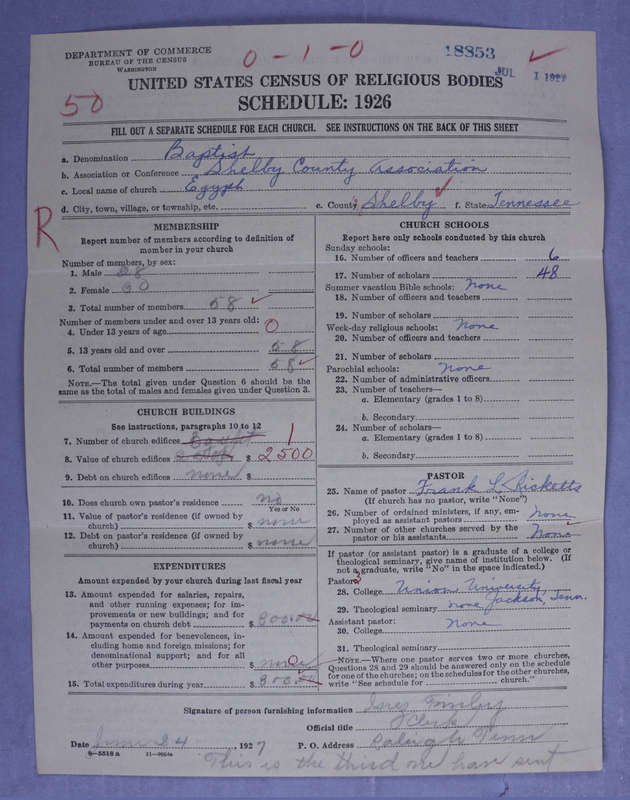 DEPARTMENT OF COMMERCE
BUREAU OF THE CENSUS
WASHINGTON
0 - 1 - 0
18853
JUL 1 1927
50
UNITED STATES CENSUS OF RELIGIOUS BODIES
SCHEDULE: 1926
FILL OUT A SEPARATE SCHEDULE FOR EACH CHURCH. SEE INSTRUCTIONS ON THE BACK OF THIS SHEET
a. Denomination Baptist
b. Association or Conference Shelby County Association
c. Local name of church Egypt
d. City, town, village, or township, etc. e. County Shelby f. State Tennessee
R
MEMBERSHIP
Report number of members according to definition of
member in your church
Number of members, by sex:
1. Male 28
2. Female 30
3. Total number of members 58
Number of members under and over 13 years old:
4. Under 13 years of age 0
5. 13 years old and over 58
6. Total number of members 58
NOTE.—The total given under Question 6 should be the
same as the total of males and females given under Question 3.
CHURCH BUILDINGS
See instructions, paragraphs 10 to 12
7. Number of church edifices 1
8. Value of church edifices $ 2500
9. Debt on church edifices none $
10. Does church own pastor's residence no
Yes or No
11. Value of pastor's residence (if owned by
church) $ none
12. Debt on pastor's residence (if owned by
church) $ none
EXPENDITURES
Amount expended by your church during last fiscal year
13. Amount expended for salaries, repairs,
and other running expenses; for im-
provements or new buildings; and for
payments on church debt $ 300.00
14. Amount expended for benevolences, in-
cluding home and foreign missions; for
denominational support; and for all
other purposes $ none
15. Total expenditures during year $ 300.00
CHURCH SCHOOLS
Report here only schools conducted by this church
Sunday schools:
16. Number of officers and teachers 6
17. Number of scholars 48
Summer vacation Bible schools: None
18. Number of officers and teachers
19. Number of scholars
Week-day religious schools: None
20. Number of officers and teachers
21. Number of scholars
Parochial schools: None
22. Number of administrative officers
23. Number of teachers—
a. Elementary (grades 1 to 8)
b. Secondary
24. Number of scholars—
a. Elementary (grades 1 to 8)
b. Secondary
PASTOR
25. Name of pastor Frank L. Ricketts
(If church has no pastor, write "None")
26. Number of ordained ministers, if any, em-
ployed as assistant pastors None
27. Number of other churches served by the
pastor or his assistants None
If pastor (or assistant pastor) is a graduate of a college or
theological seminary, give name of institution below. (If
not a graduate, write "No" in the space indicated.)
Pastor:
28. College Union University,
Jackson, Tenn.
29. Theological seminary none
Assistant pastor: None
30. College
31. Theological seminary
NOTE.—Where one pastor serves two or more churches,
Questions 28 and 29 should be answered only on the schedule
for one of the churches; on the schedules for the other churches,
write "See schedule for church."
Signature of person furnishing information
Official title Clerk
Date June 24, 1927 P. O. Address Raleigh Tenn
8—5518 a 11—9264a
This is the third one have sent